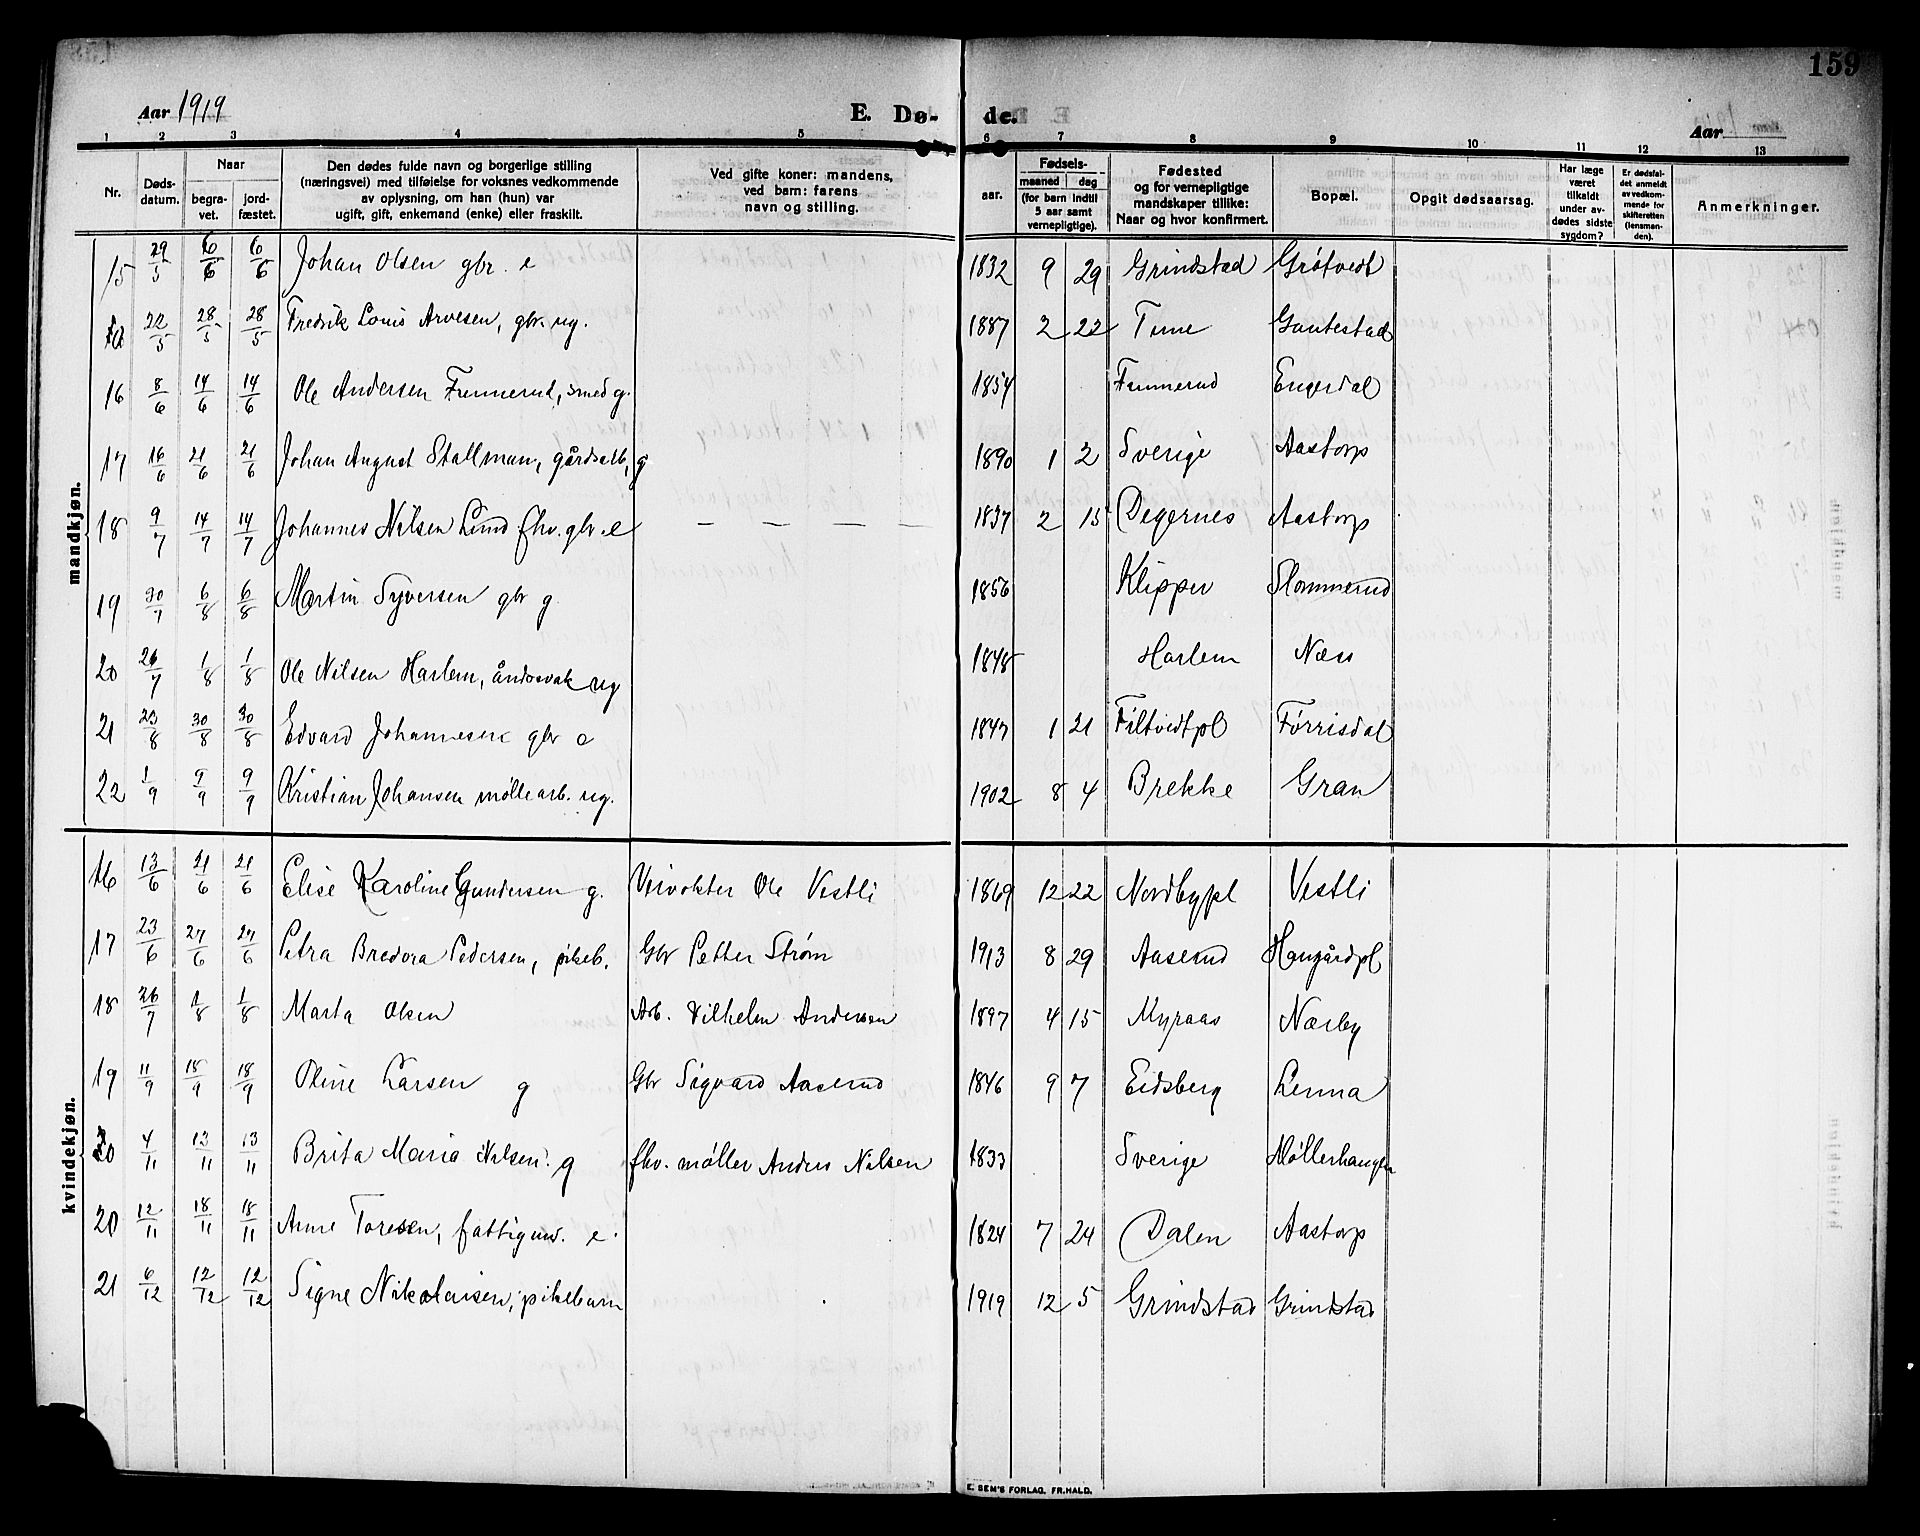 159
Aar 1919 E. Dø- de. Aar
1 2 3 4 5 6 7 8 9 10 11 12 13
Nr. Døds-datum. Naar begra-vet. jord-fæstet. Den dødes fulde navn og borgerlige stilling (næringsvei) med tilføielse for voksnes vedkommende av oplysning, om han (hun) var ugift, gift, enkemand (enke) eller fraskilt. Ved gifte koner: mandens, ved barn: farens navn og stilling. Fødsels- aar. maaned dag (for barn indtil 5 aar samt vernepligtige). Fødested og for vernepligtige mandskaper tillike: Naar og hvor konfirmert. Bopæl. Opgit dødsaarsag. Har læge været tilkaldt under av-dødes sidste sygdom? Er dødsfal-det anmeldt av vedkom-mende for skifteretten (lensman-den). Anmerkninger.
mandkjøn.
15 29/5 6/6 6/6 Johan Olsen gbr. e 1832 9 29 Grindstad Grøtvedt
22/5 28/5 28/5 Fredrik Louis Arvesen, gbr. ug. 1887 2 22 Tune Gautestad
16 8/6 14/6 14/6 Ole Andersen Funnerud, smed g. 1854 Funnerud Engerdal
17 16/6 21/6 21/6 Johan August Stallman, gårdsarb, g 1890 1 2 Sverige Aastorp
18 9/7 14/7 14/7 Johannes Nilsen Lund fhv. gbr. e — — — — 1837 2 15 Degernes Aastorp
19 30/7 6/8 6/8 Martin Syversen gbr g 1856 Klipper Slommerud
20 26/7 1/8 1/8 Ole Nilsen Harlem, åndssvak ug 1848 Harlem Næss
21 23/8 30/8 30/8 Edvard Johannesen gbr e 1847 1 21 Filtvedtpl Førrisdal
22 1/9 9/9 9/9 Kristian Johansen møllearb. ug. 1902 8 4 Brekke Gran
kvindekjøn.
16 13/6 21/6 21/6 Elise Karoline Gundersen g. Veivokter Ole Vestli 1869 12 22 Nordbypl Vestli
17 23/6 27/6 27/6 Petra Bredora Pedersen, pikeb. Gbr Petter Strøm 1913 8 29 Aaserud Haugårdpl
18 26/7 1/8 1/8 Marta Olsen Arb. Vilhelm Andersen 1897 4 15 Myraas Nærby
19 11/9 18/9 18/9 Oline Larsen g Gbr Sigvard Aaserud 1846 9 7 Eidsberg Lenna
20 4/11 13/11 13/11 Brita Maria Nilsen. g fhv. møller Anders Nilsen 1833 Sverige Møllerhaugen
20 12/11 18/11 18/11 Anne Toresen, fattigund. e. 1824 7 24 Dalen Aastorp
21 6/12 12/12 12/12 Signe Nikolaisen, pikebarn 1919 12 5 Grindstad Grindstad
E. SEM'S FORLAG, FR.HALD.